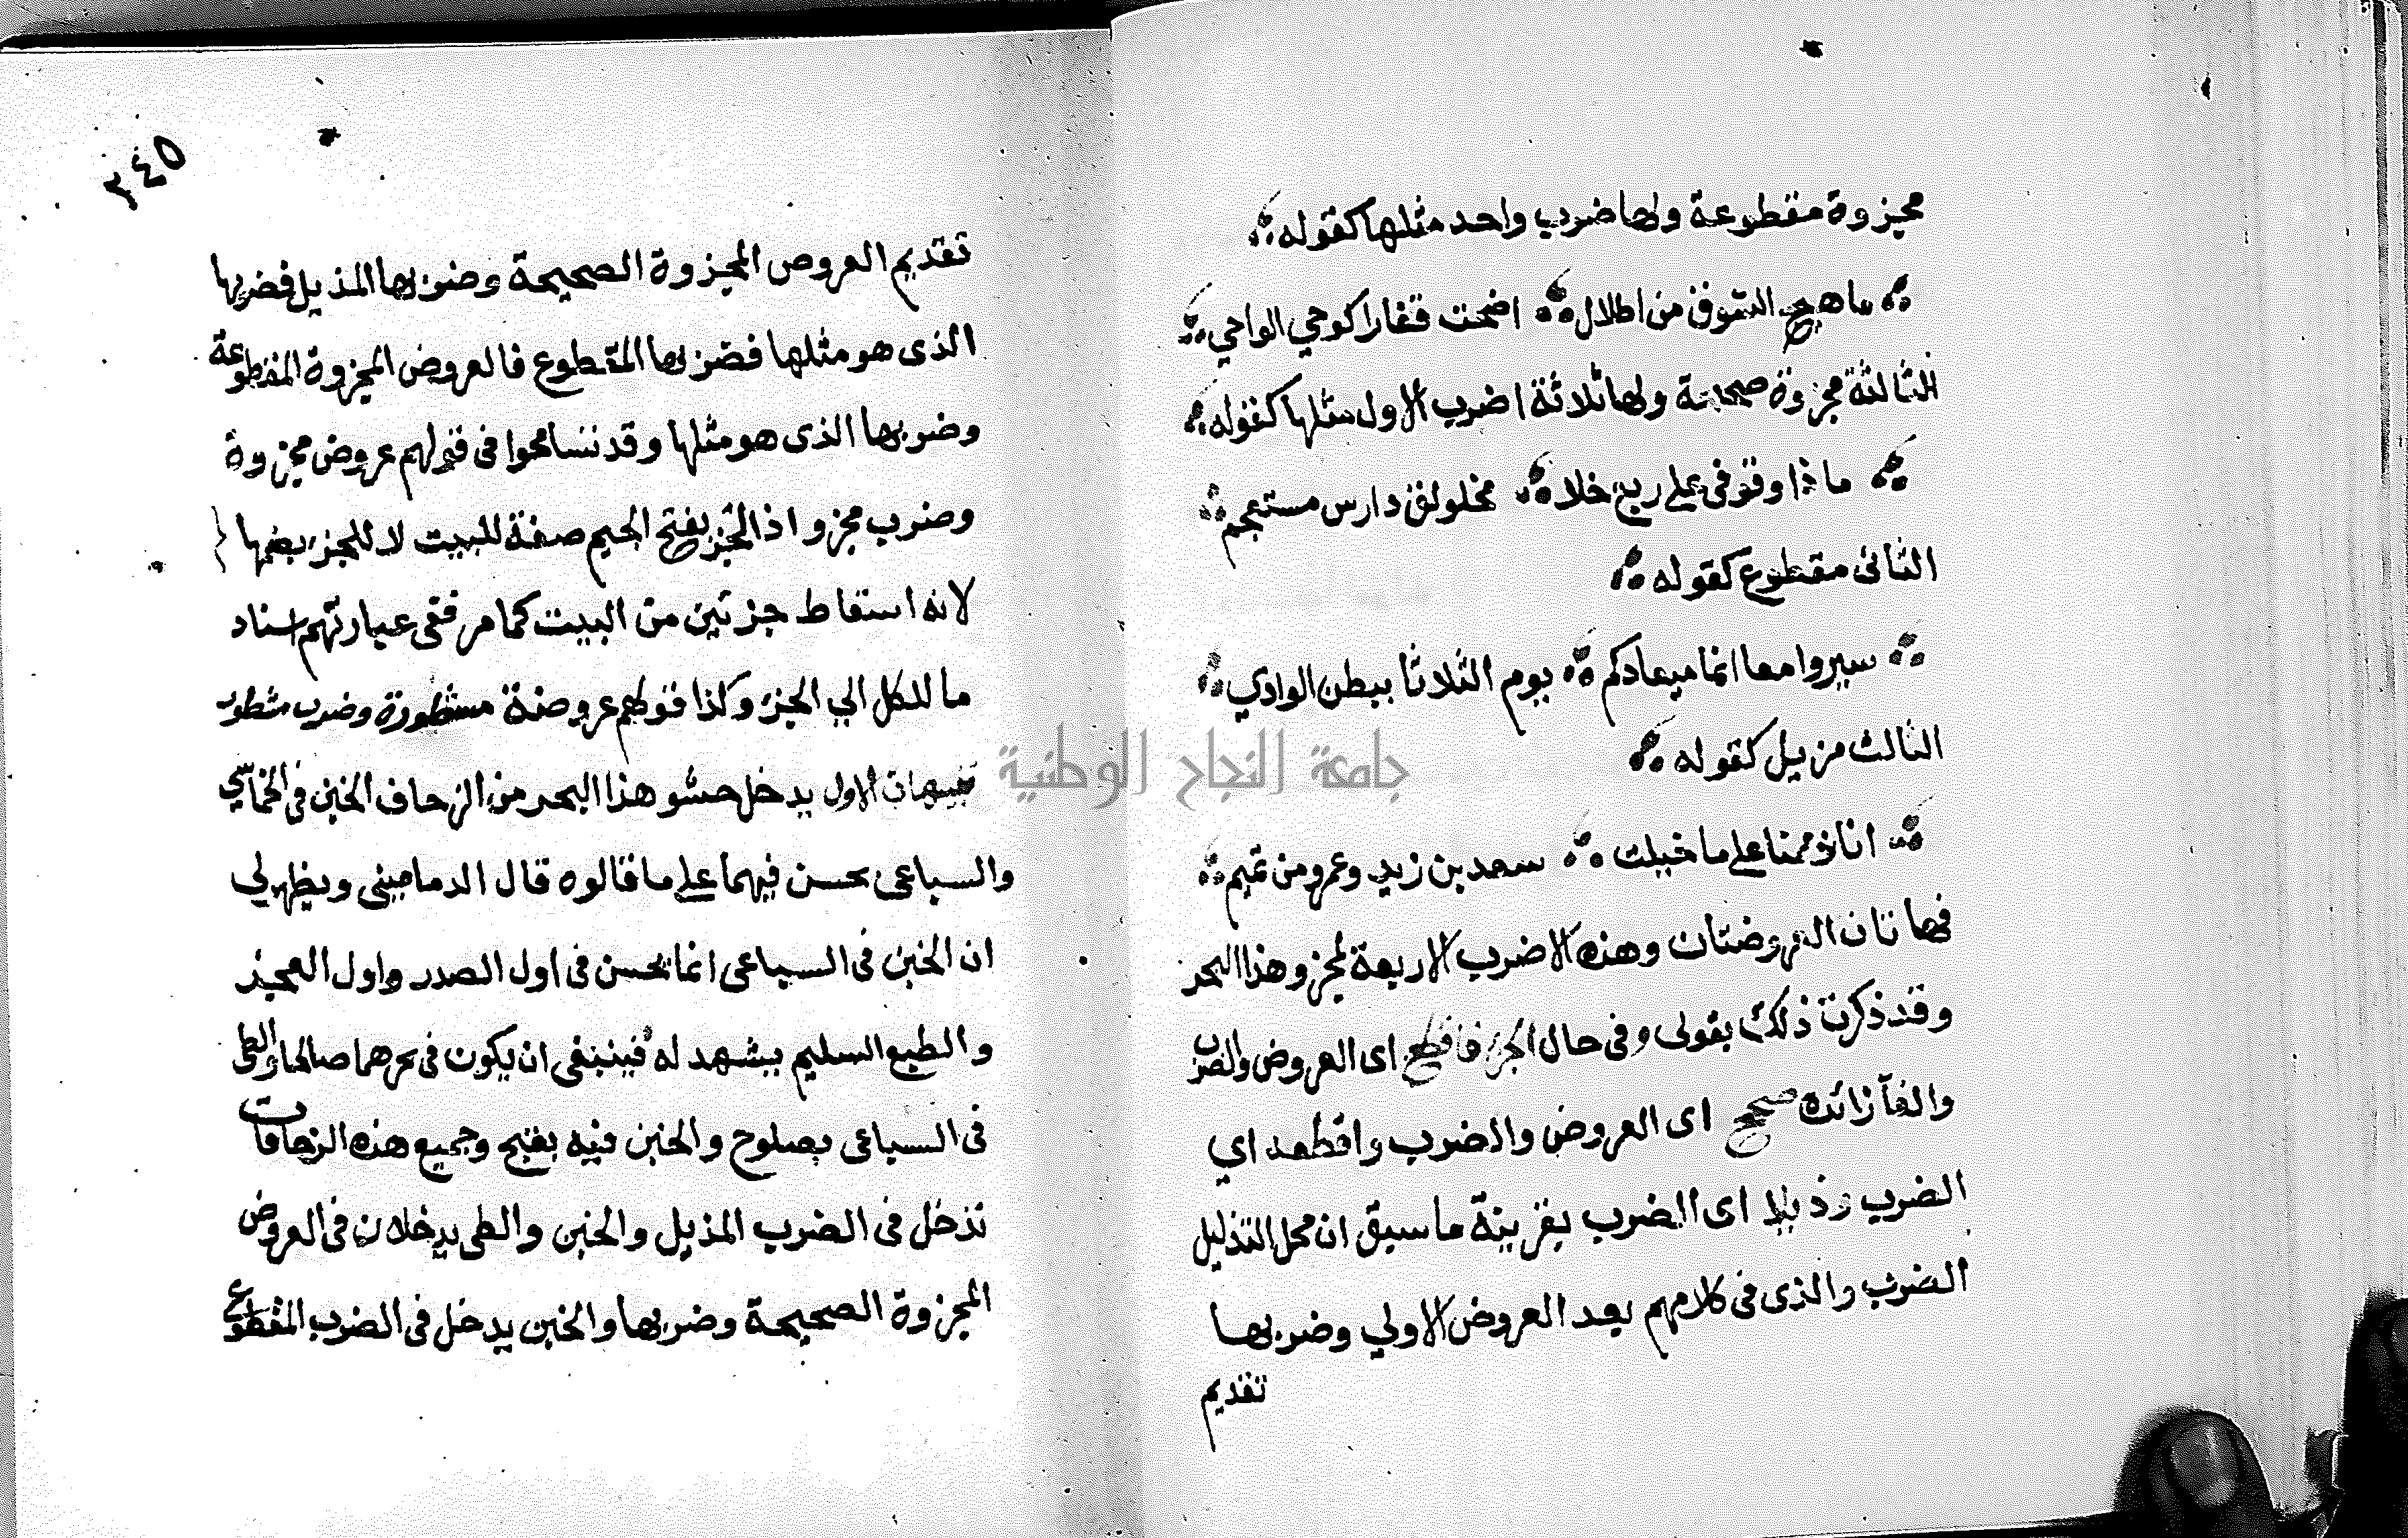 مجزوة مقطوعة ولها ضرب واحد مثلها كقوله
ما هيج الشوق من اطلال اضحت قفارا كوحي الواحي
الثالثة مجزوة صحيحة ولها ثلاثة اضرب الاول مثلها كقوله
ماذا وقوفى على ربع خلا مخلولق دارس مستعجم
الثانى مقطوع كقوله
سيروا معا انما ميعادكم يوم الثلاثا ببطن الوادي
الثالث مزيل كقوله
انا ذممنا على ما خيلت سعد بن زيد وعمرو من تميم
فهاتان العروضتان وهذه الاضرب الاربعة لمجزو هذا البحر
وقد ذكرت ذلك بقولى وفى حال الجزء فاقطع اى العروض والضرب
والفآ زائدة صحح اى العروض والضرب واقطعه اي
الضرب وذيلا اى الضرب بقرينة ما سبق ان محل التذليل
الضرب والذى فى كلامهم بعد العروض الاولي وضربها
تقديم
٣٤٥
تقديم العروض المجزوة الصحيحة وضربها المذيل فضربها
الذى هو مثلها فضربها المقطوع فالعروض المجزوة المقطوعة
وضربها الذى هو مثلها وقد تسامحوا فى قولهم عروض مجزوة
وضرب مجزو اذ الجزء بفتح الجيم صفة للبيت لا للجزء بضمها
لانه اسقاط جزئين من البيت كما مر ففى عبارتهم اسناد
ما للكل الي الجزء وكذا قولهم عروضة مشطورة وضرب مشطور
تنبيهات الاول يدخل حشو هذا البحر من الزحاف الخبن فى الخماسي
والسباعى بحسن فيهما على ما قالوه قال الدمامينى ويظهر لي
ان الخبن فى السباعى انما يحسن فى اول الصدر واول العجز
والطبع السليم يشهد له فينبغى ان يكون فى غيرهما صالحا والطى
فى السباعى بصلوح والخبن فيه بقبح وجميع هذه الزحافات
تدخل فى الضرب المذيل والخبن والطى يدخلان فى العروض
المجزوة الصحيحة وضربها والخبن يدخل فى الضرب المقطوع
جامعة النجاح الوطنية